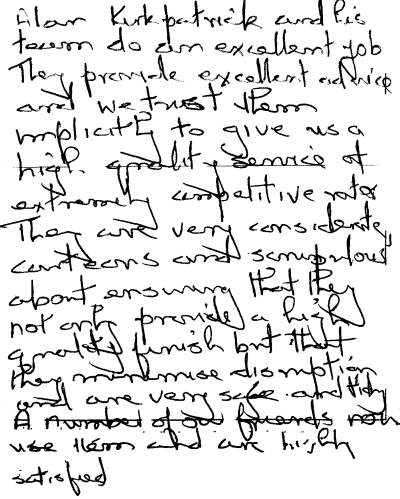 Alan Kirkpatrick and his
team do an excellent job
They provide excellent advice
and we trust them
implicitly to give us a
high quality service at
extremely competitive rates
They are very considerate,
courteous and scrupulous
about ensuring that they
not only provide a high
quality finish but that
they minimise disruption
and are very safe and tidy
A number of our friends now
use them and are highly
satisfied